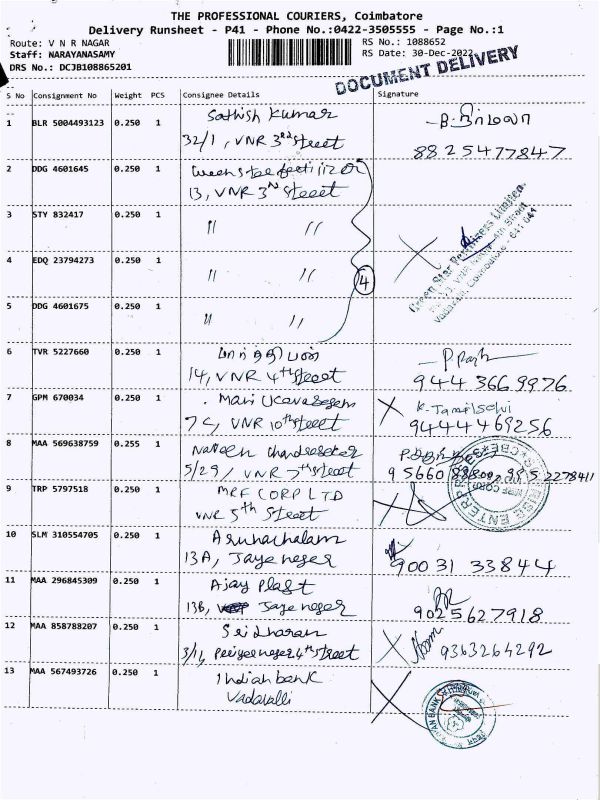 THE PROFESSIONAL COURIERS, Coimbatore
Delivery Runsheet - P41 - Phone No.:0422-3505555 - Page No.:1
Route: V N R NAGAR
RS No.: 1088652
Staff: NARAYANASAMY
RS Date: 30-Dec-2022
DRS No.: DCJB108865201
DOCUMENT DELIVERY
S No Consignment No Weight PCS Consignee Details Signature
1 BLR 5004493123 0.250 1 Sathish Kumar
32/1, VNR 3rd Street
8825477847
2 DDG 4601645 0.250 1
13, VNR 3rd Street
3 STY 832417 0.250 1 " "
Green Star Fertilizers Limited
4 EDQ 23794273 0.250 1 " " 4
5 DDG 4601675 0.250 1 " "
6 TVR 5227660 0.250 1
14, VNR 4th Street
944 366 9976
7 GPM 670034 0.250 1 K. Tamilselvi
7C, VNR 10th Street 9444469256
8 MAA 569638759 0.255 1 Naveen Chandrasekar
5/29, VNR 7th Street
9 TRP 5797518 0.250 1 MRF CORP LTD
VNR 5th Street
10 SLM 310554705 0.250 1 Arunachalam
13A, Jaya neger 90031 33844
11 MAA 296845309 0.250 1 Ajay Plast
13B, Jaya neger 9025627918
12 MAA 858788207 0.250 1 Sridharan
3/11, Periyar neger 4th Street 9363264292
13 MAA 567493726 0.250 1 Indian bank
Vadavalli